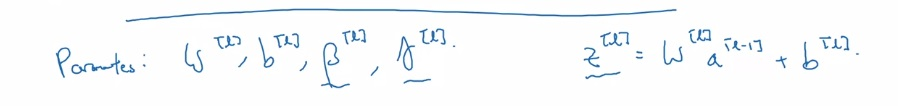 Parameters: W^[l], b^[l], β^[l], γ^[l]. z^[l] = W^[l] a^[l-1] + b^[l].